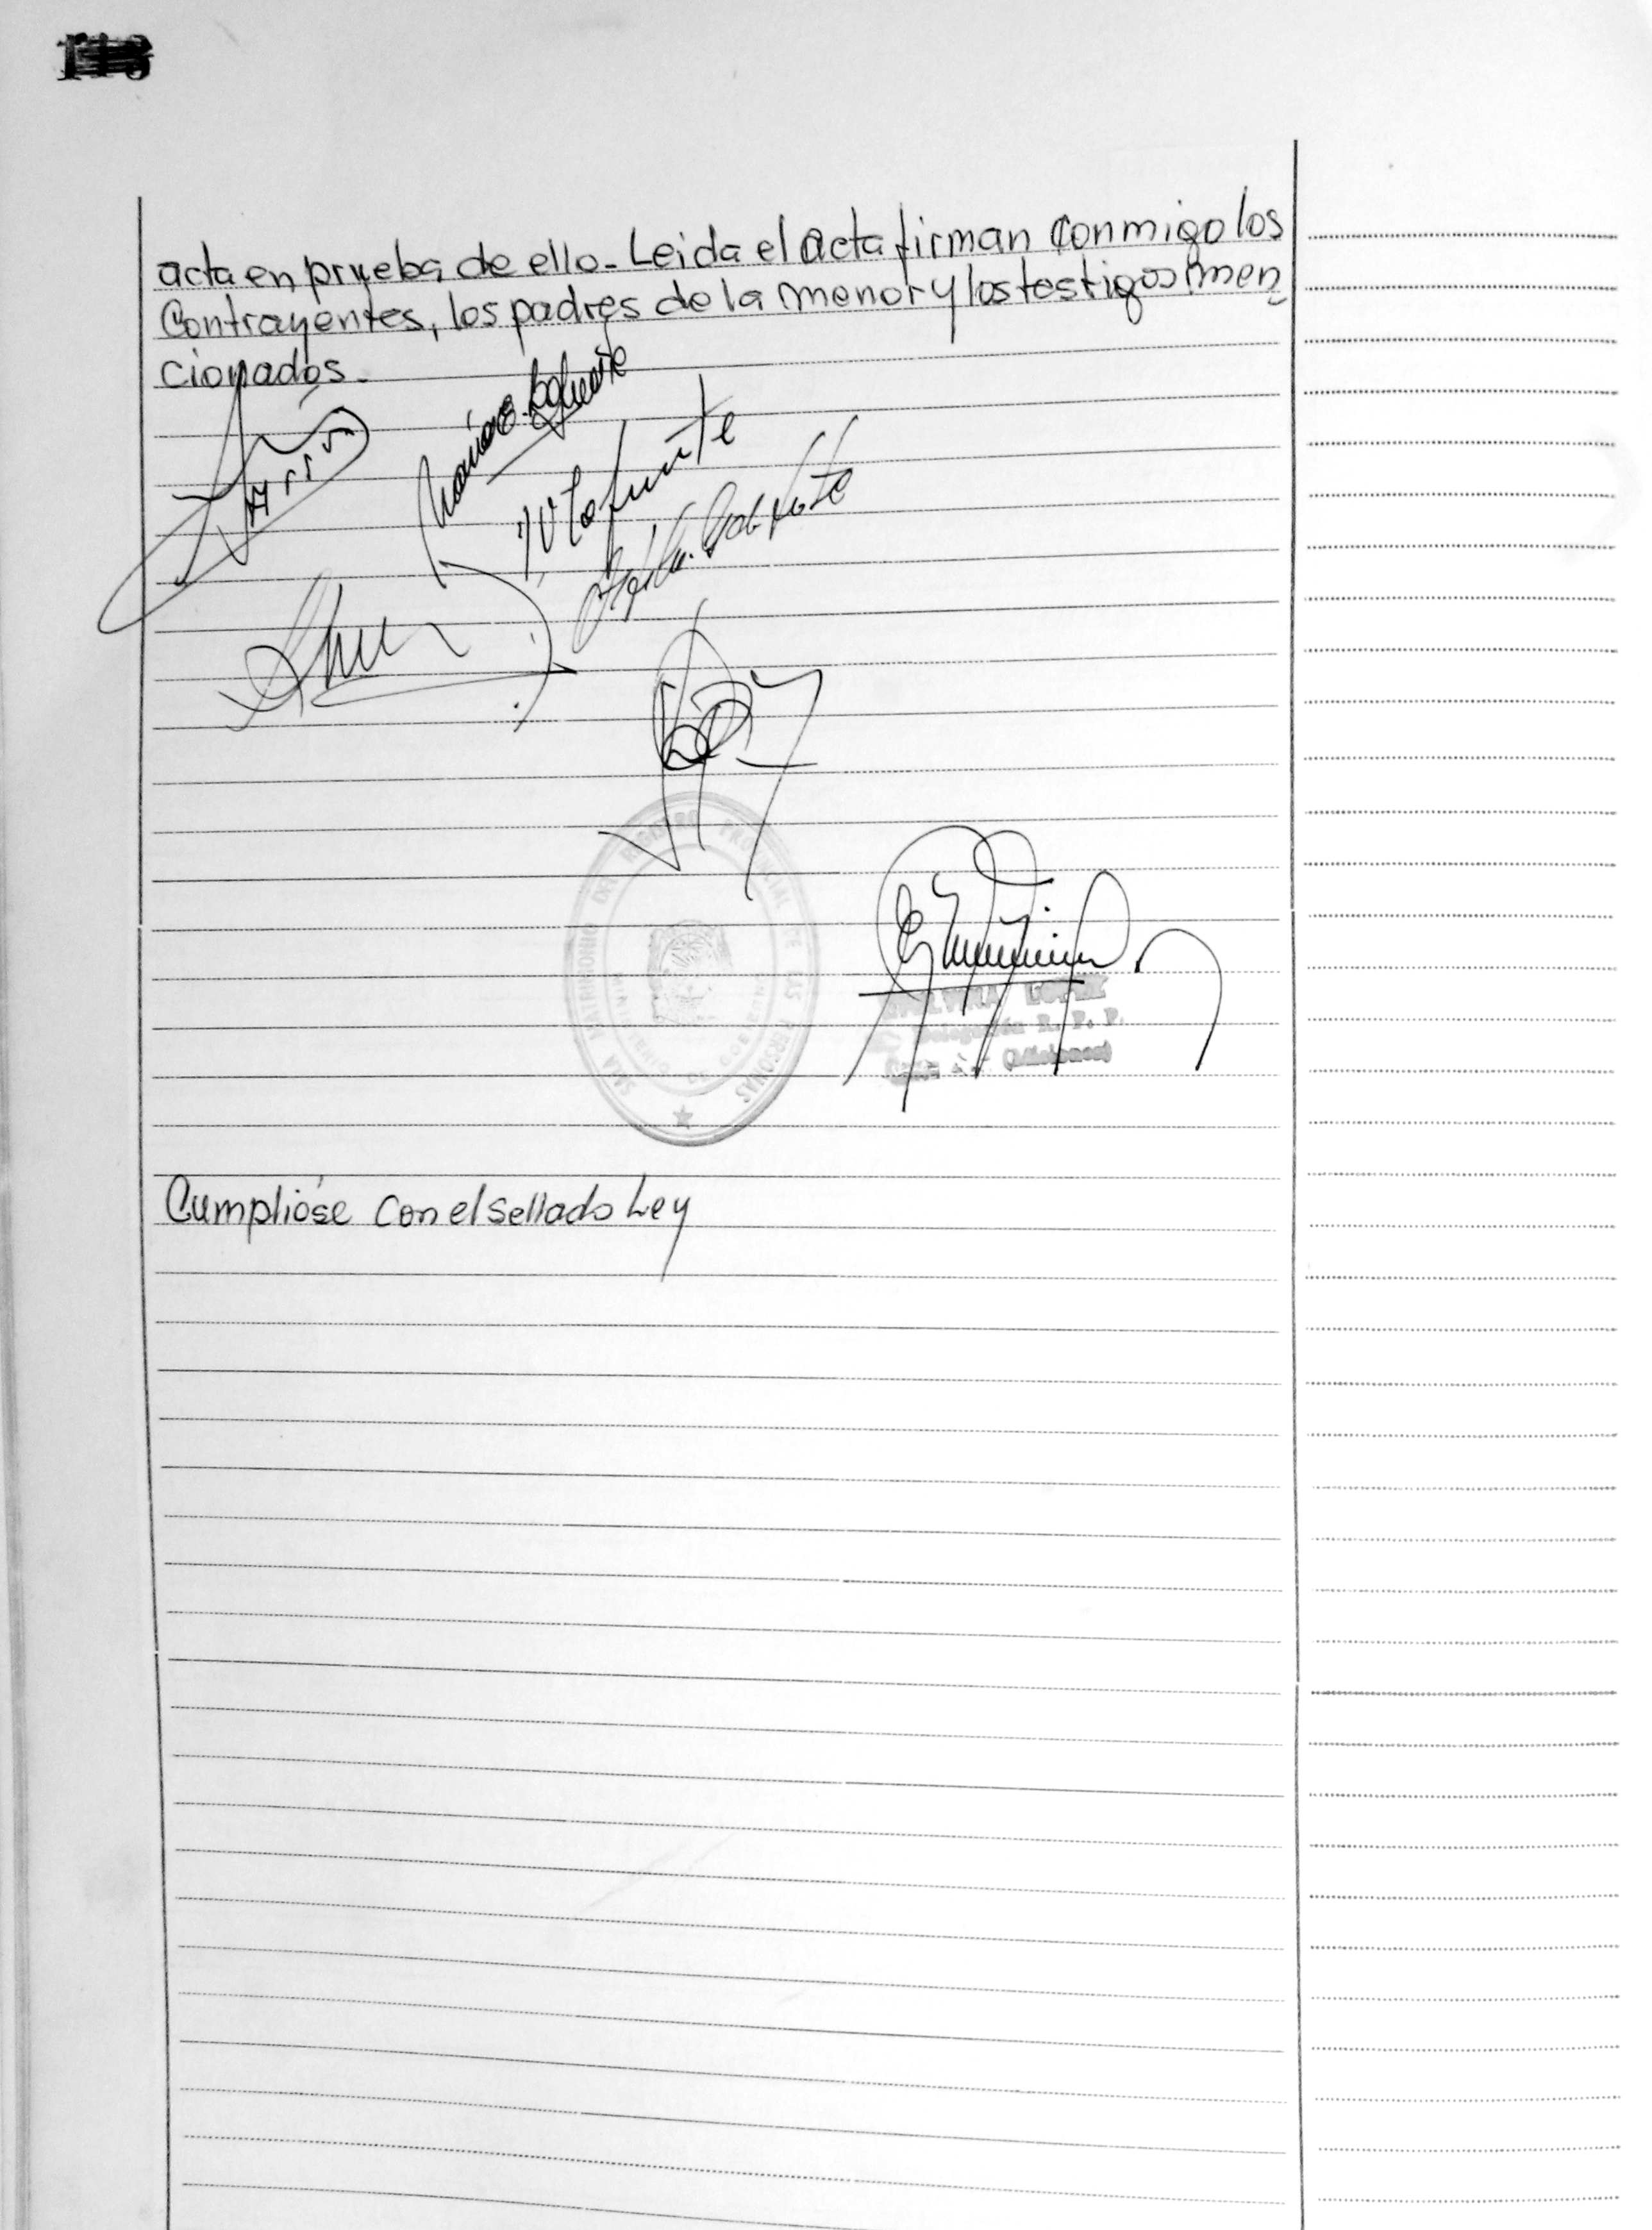 acta en prueba de ello - Leida el acta firman conmigo los
Contrayentes, los padres de la menor y los testigos men
cionados.
SALA MATRIMONIO DEL REGISTRO PROVINCIAL DE LAS PERSONAS
MINISTERIO DE GOBIERNO
LOPEZ
Delegación R. P. P.
(Misiones)
Cumplióse con el sellado Ley